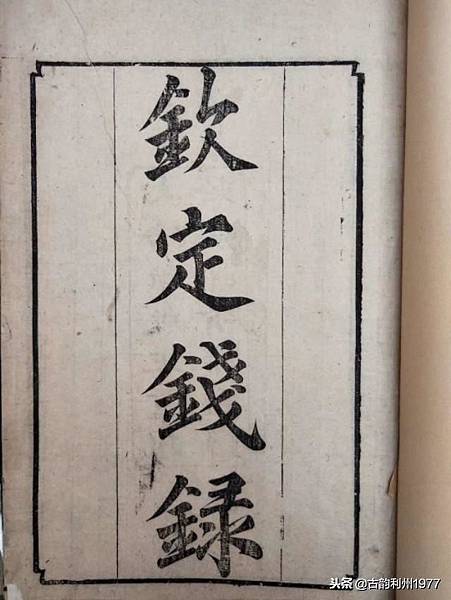 欽定錢録
头条 @古韵利州1977